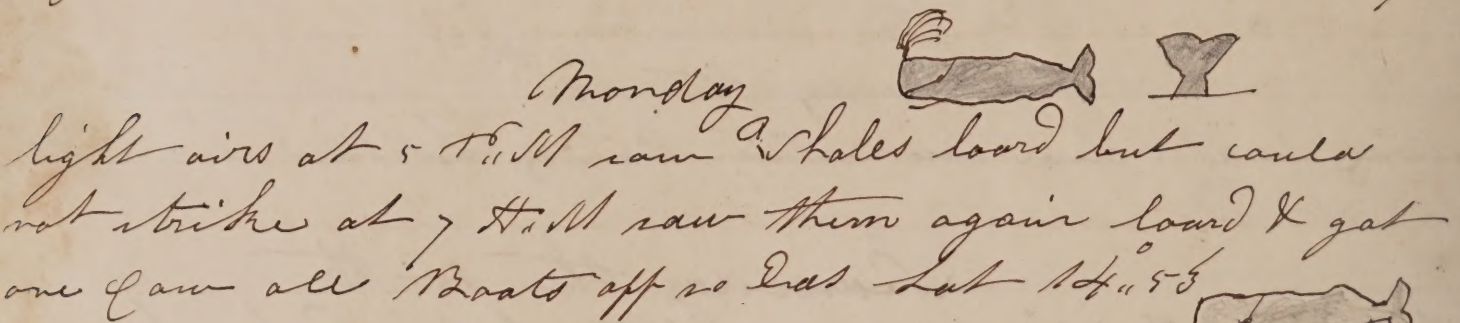 Monday
light airs at 5 P,,M saw Whales loard but could
not strike at 7 A,,M saw them again loard & got
one Cow all Boats off so Ends Lat 14°,,53'